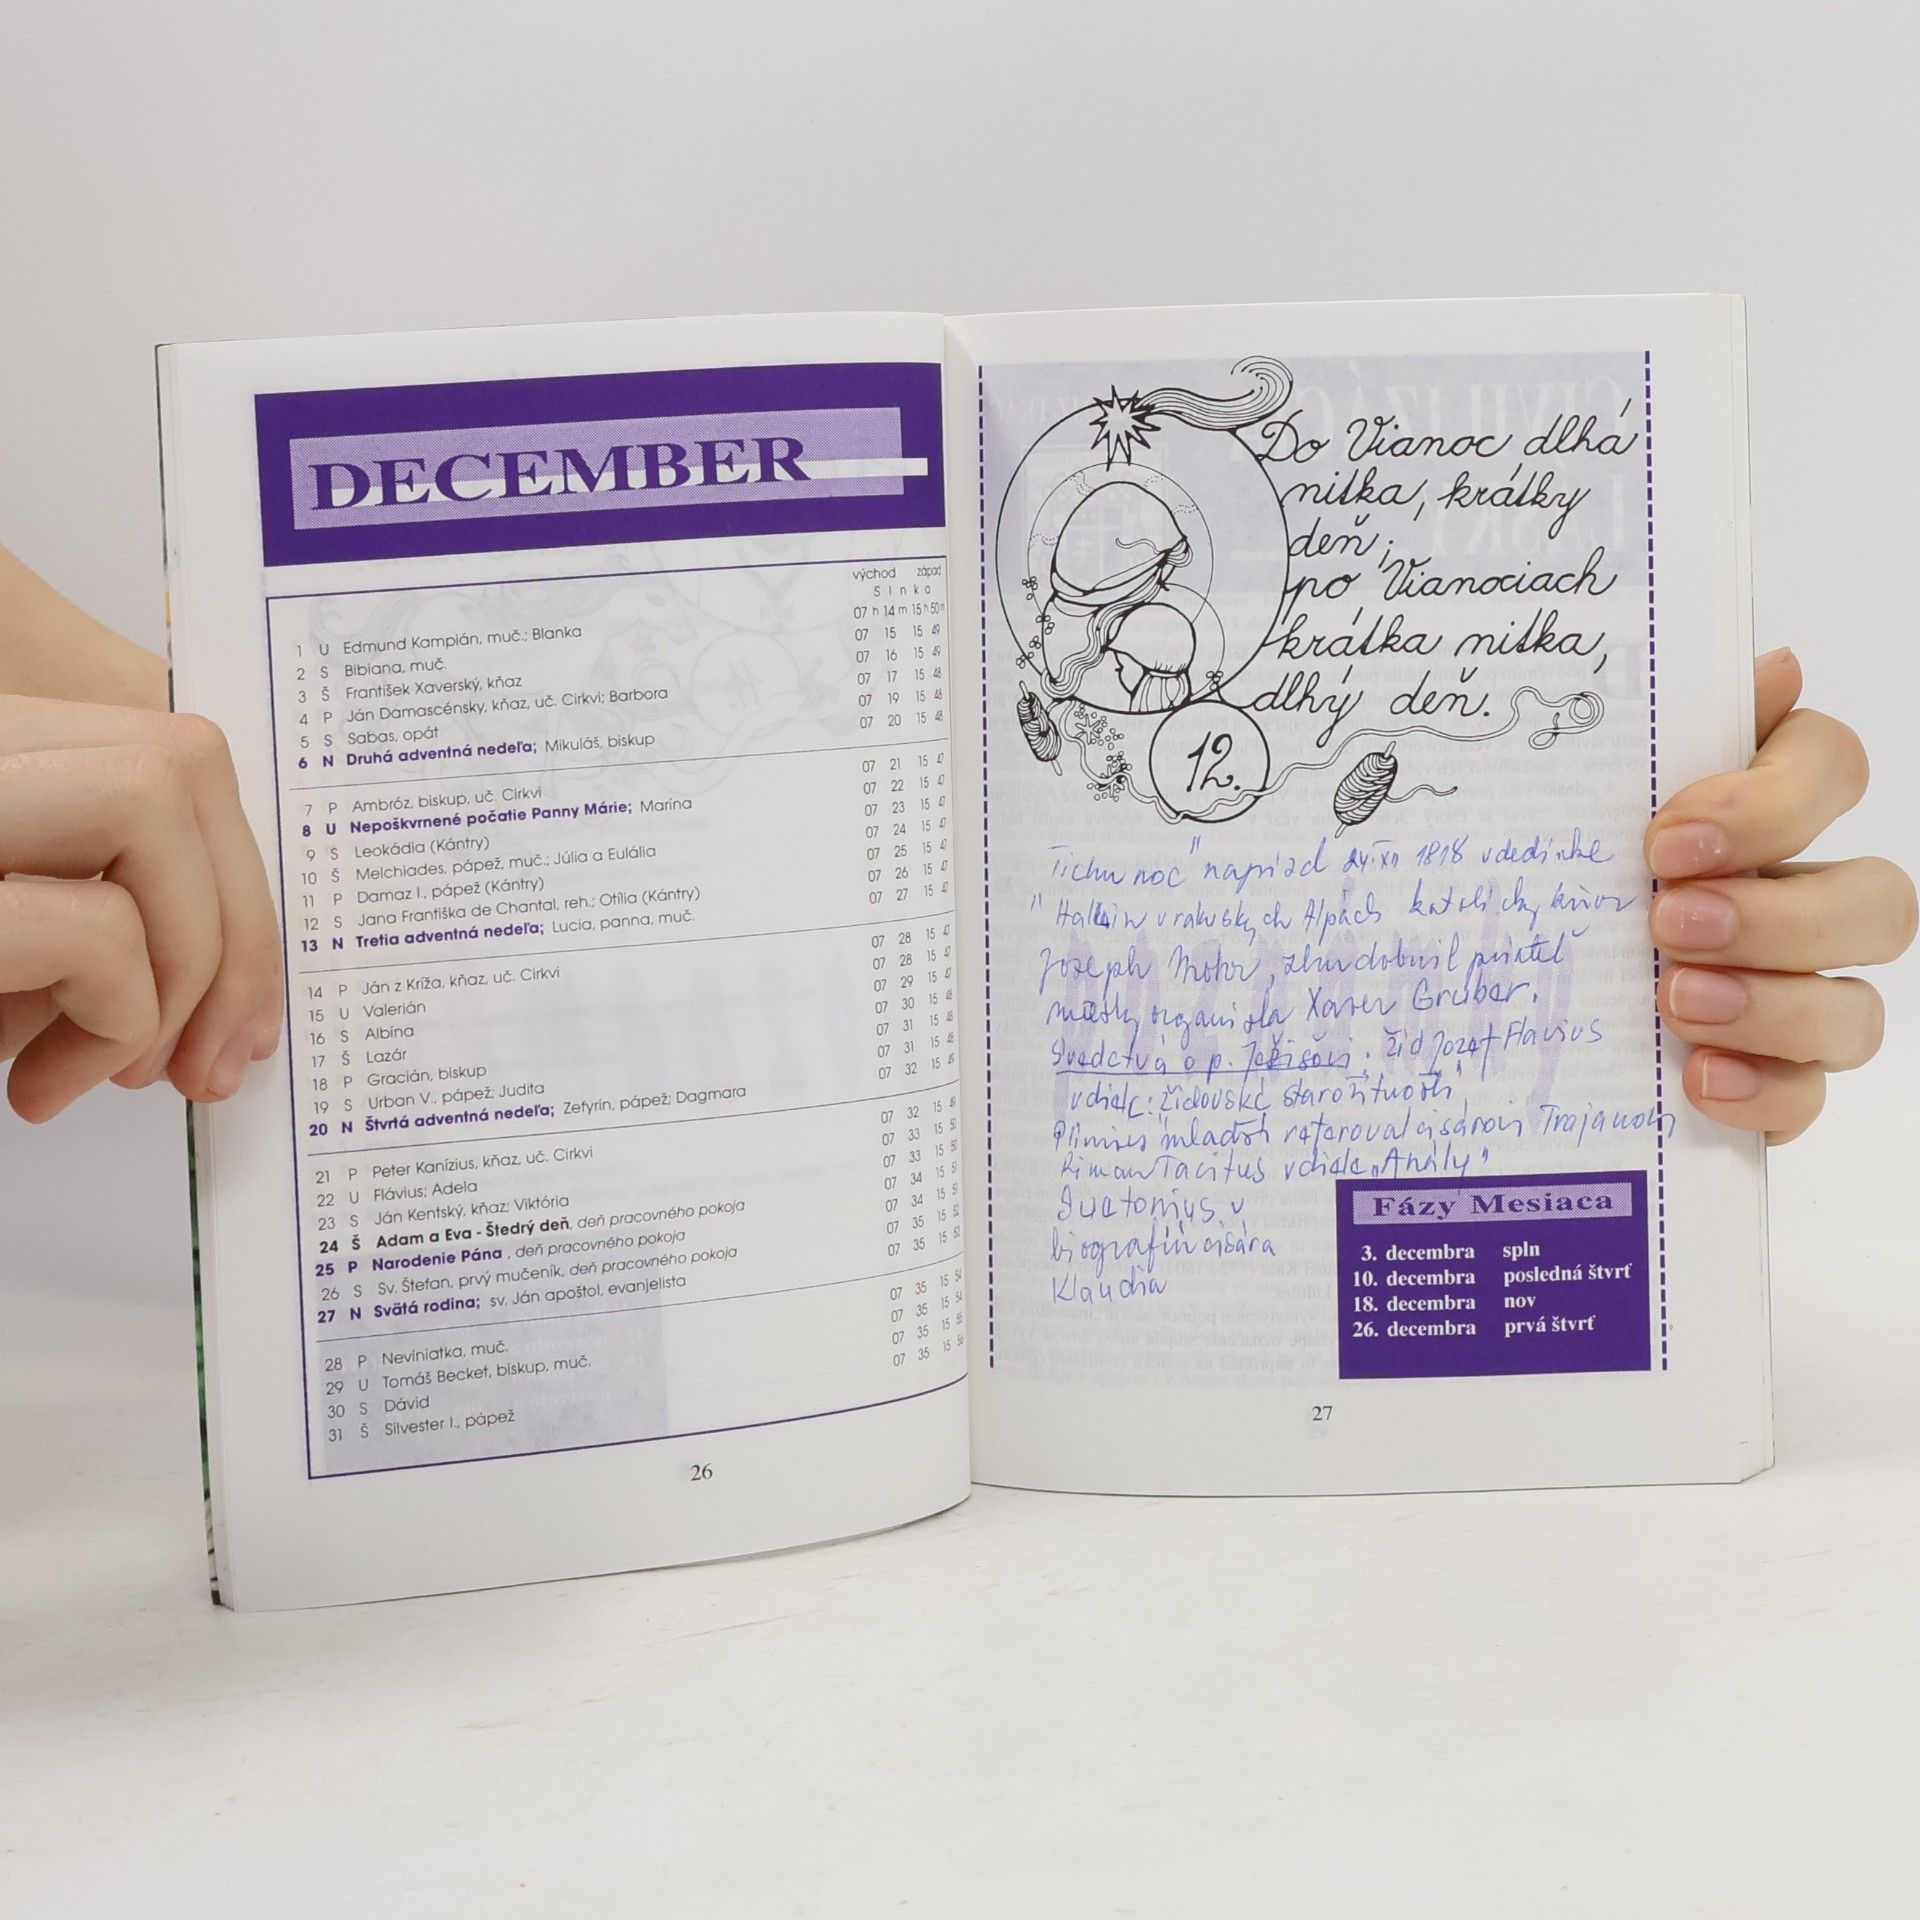 DECEMBER
východ západ
Slnka
07 h 14 m 15 h 50 m
1 U Edmund Kampián, muč.; Blanka 07 15 15 49
2 S Bibiana, muč. 07 16 15 49
3 Š František Xaverský, kňaz 07 17 15 48
4 P Ján Damascénsky, kňaz, uč. Cirkvi; Barbora 07 19 15 48
5 S Sabas, opát 07 20 15 48
6 N Druhá adventná nedeľa; Mikuláš, biskup
07 21 15 47
7 P Ambróz, biskup, uč. Cirkvi 07 22 15 47
8 U Nepoškvrnené počatie Panny Márie; Marína 07 23 15 47
9 S Leokádia (Kántry) 07 24 15 47
10 Š Melchiades, pápež, muč.; Júlia a Eulália 07 25 15 47
11 P Damaz I., pápež (Kántry) 07 26 15 47
12 S Jana Františka de Chantal, reh.; Otília (Kántry) 07 27 15 47
13 N Tretia adventná nedeľa; Lucia, panna, muč.
07 28 15 47
14 P Ján z Kríža, kňaz, uč. Cirkvi 07 28 15 47
15 U Valerián 07 29 15 47
16 S Albína 07 30 15 48
17 Š Lazár 07 31 15 48
18 P Gracián, biskup 07 31 15 48
19 S Urban V., pápež; Judita 07 32 15 49
20 N Štvrtá adventná nedeľa; Zefyrín, pápež; Dagmara
07 32 15 49
21 P Peter Kanízius, kňaz, uč. Cirkvi 07 33 15 50
22 U Flávius; Adela 07 33 15 50
23 S Ján Kentský, kňaz; Viktória 07 34 15 51
24 Š Adam a Eva - Štedrý deň, deň pracovného pokoja 07 34 15 51
25 P Narodenie Pána , deň pracovného pokoja 07 35 15 52
26 S Sv. Štefan, prvý mučeník, deň pracovného pokoja 07 35 15 53
27 N Svätá rodina; sv. Ján apoštol, evanjelista
07 35 15 54
28 P Neviniatka, muč. 07 35 15 54
29 U Tomáš Becket, biskup, muč. 07 35 15 55
30 S Dávid 07 35 15 56
31 Š Silvester I., pápež
26
Do Vianoc dlhá
nitka, krátky
deň;
po Vianociach
krátka nitka,
dlhý deň.
12.
Tichu noc" 24.XII 1818 v dedinke
v rakuskych Alpách katolícky
Joseph Mohr, zhudobnil priateľ
organista Xaver Gruber.
Svedectvá o p. Ježišovi: žid Jozef Flavius
v diele: "židovské starožitnosti"
Plinius mladší referoval cisárovi Trajanovi
Riman Tacitus v diele "Anály"
Suetonius v
biografii cisára
Klaudia
Fázy Mesiaca
3. decembra spln
10. decembra posledná štvrť
18. decembra nov
26. decembra prvá štvrť
27